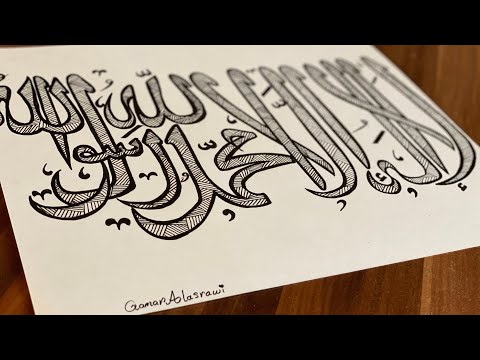 لا إله إلا الله محمد رسول الله
GamarAlasrawi